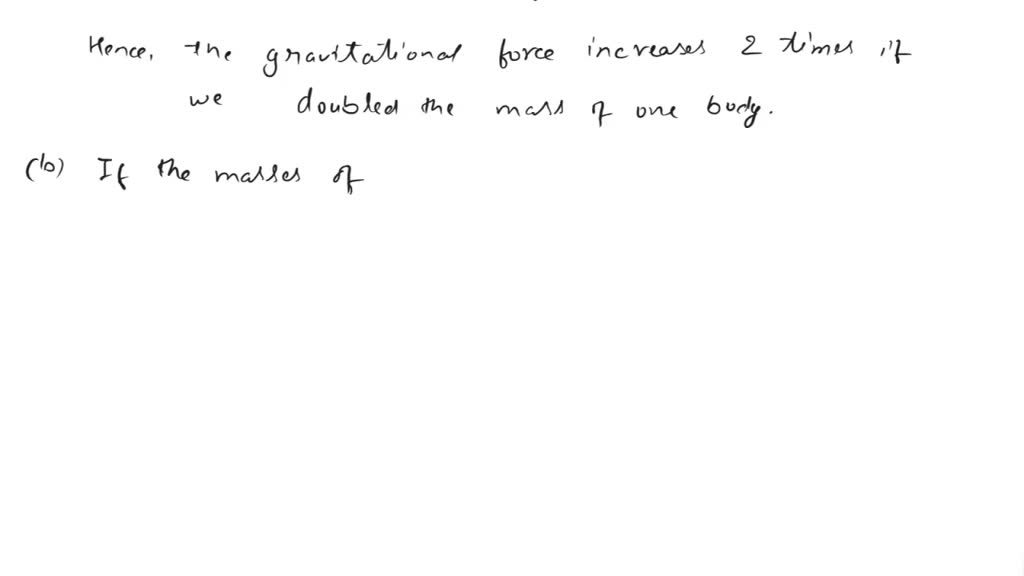 Hence, the gravitational force increases 2 times if
we doubled the mass of one body.
(b) If the masses of